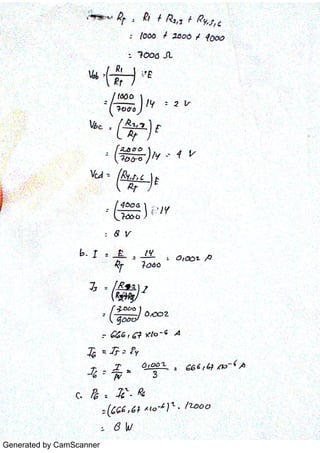 RT = R1 + R2,3 + R4,5,6
= 1000 + 2000 + 4000
= 7000 Ω
Vab = (R1 / RT) E
= (1000 / 7000) 14 = 2 V
Vbc = (R2,3 / RT) E
= (2000 / 7000) 14 = 4 V
Vcd = (R4,5,6 / RT) E
= (4000 / 7000) 14
= 8 V
b. I = E / RT = 14 / 7000 = 0,002 A
I3 = I
= (3000 / 9000) 0,002
= 666,67 x10-6 A
I6 = I5 = I4
I6 = I / N = 0,002 / 3 = 666,67 x10-6 A
c. P6 = I6². R6
= (666,67 x10-6)². 12000
= 8 W
Generated by CamScanner